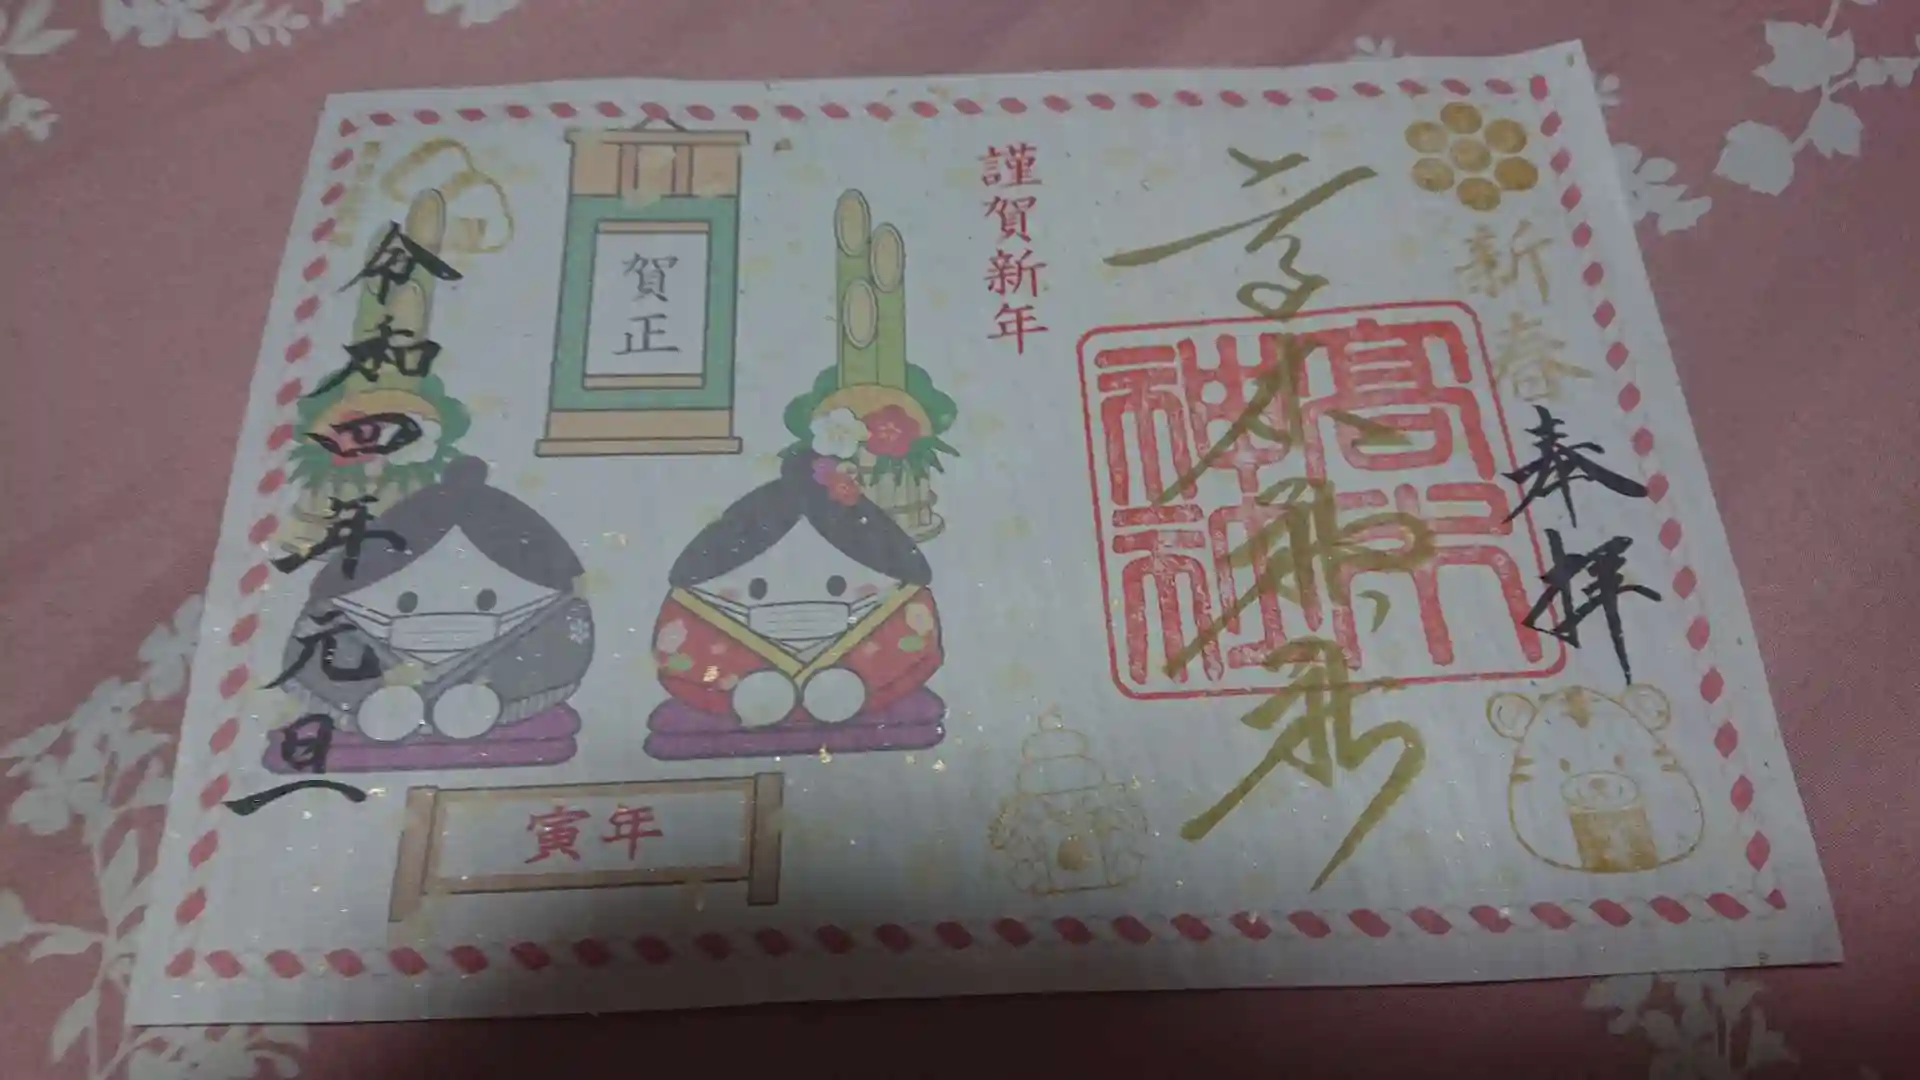 新春
奉拝
高木神社
高木神社
謹賀新年
賀正
寅年
令和四年元旦